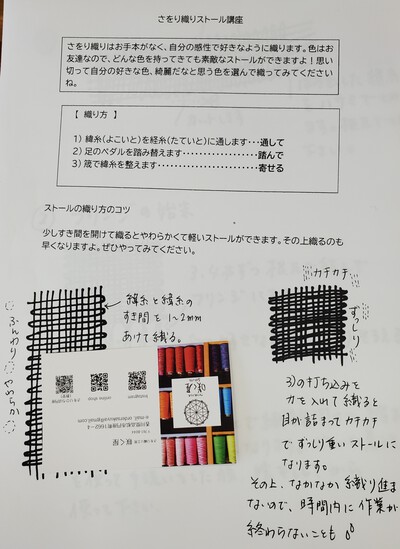 さをり織りストール講座
さをり織りはお手本がなく、自分の感性で好きなように織ります。色はお
友達なので、どんな色を持ってきても素敵なストールができますよ！思い
切って自分の好きな色、綺麗だなと思う色を選んで織ってみてください
ね。
【 織り方 】
1) 緯糸(よこいと)を経糸(たていと)に通します・・・通して
2) 足のペダルを踏み替えます・・・・・・・・・・・・・・・・・・踏んで
3) 筬で緯糸を整えます・・・・・・・・・・・・・・・・・・・・寄せる
ストールの織り方のコツ
少しすき間を開けて織るとやわらかくて軽いストールができます。その上織るのも
早くなりますよ。ぜひやってみてください。
ふんわり
やわらか
緯糸と緯糸の
すき間を1〜2mm
あけて織る。
カチカチ
ずっしり
3)の打ち込みを
力を入れて織ると
目が詰まってカチカチ
でずっしり重いストールに
なります。
その上、なかなか織り進ま
ないので、時間内に作業が
終わらないことも
instagram
online shop